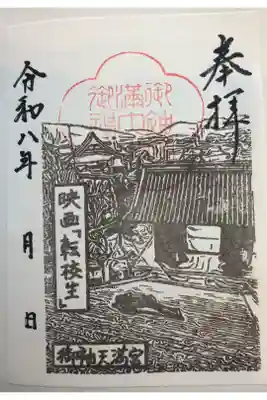 奉拝
映画「転校生」
御袖天満宮
令和八年　月　日